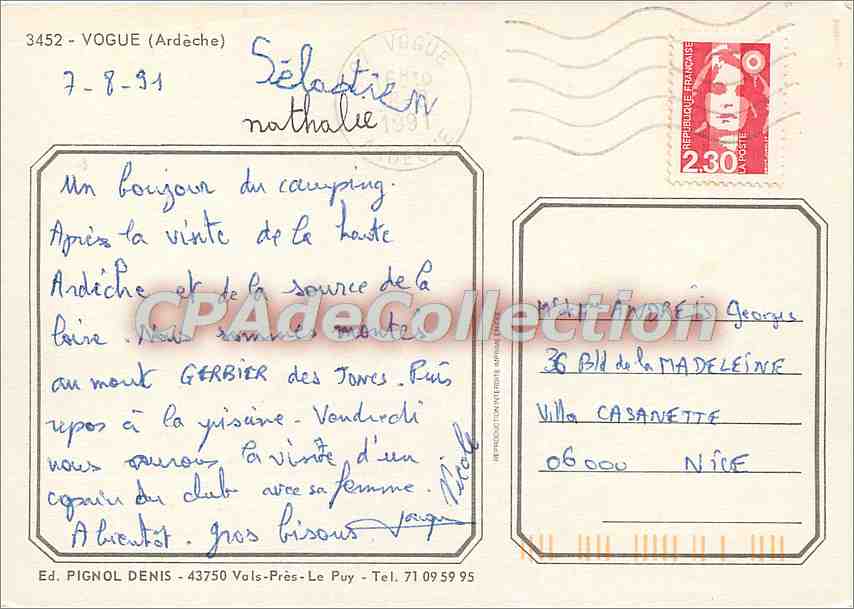 3452 - VOGUE (Ardèche)
7-8-91
Sébastien
nathalie
VOGUE
1991
ARDECHE
REPUBLIQUE FRANÇAISE
2,30
LA POSTE
Un boujour du camping.
Après la visite de la haute
Ardèche et de la source de la
loire. Nous sommes montés
au mont GERBIER des Joncs. Puis
repos à la piscine. Vendredi
nous aurons la visite d'un
copain du club avec sa femme.
A bientôt. gros bisous
Nicole
CPAdeCollection.com
REPRODUCTION INTERDITE IMPRIMÉ EN CEE
ANDREIS Georges
36 Bld de la MADELEINE
Villa CASANETTE
06000 NICE
Ed. PIGNOL DENIS - 43750 Vals-Près-Le Puy - Tel. 71 09 59 95